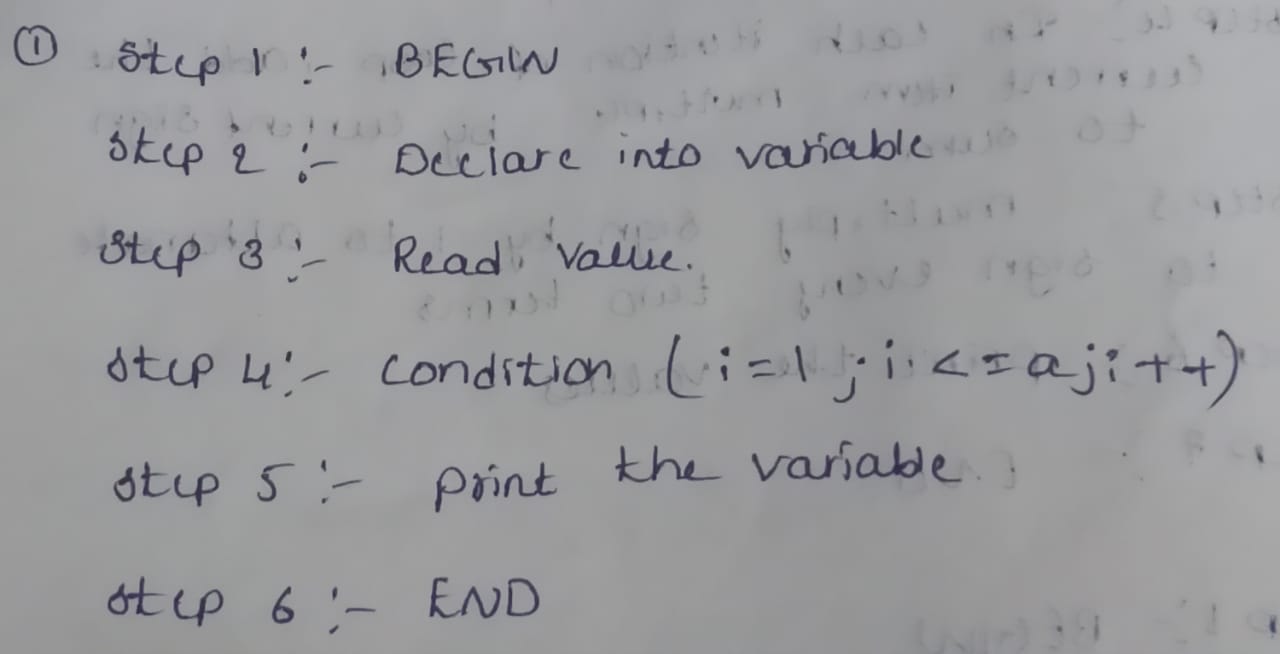 ① Step 1 :- BEGIN
Step 2 :- Declare into variable
Step 3 :- Read value.
Step 4 :- condition (i=1; i<=a; i++)
Step 5 :- print the variable.
Step 6 :- END